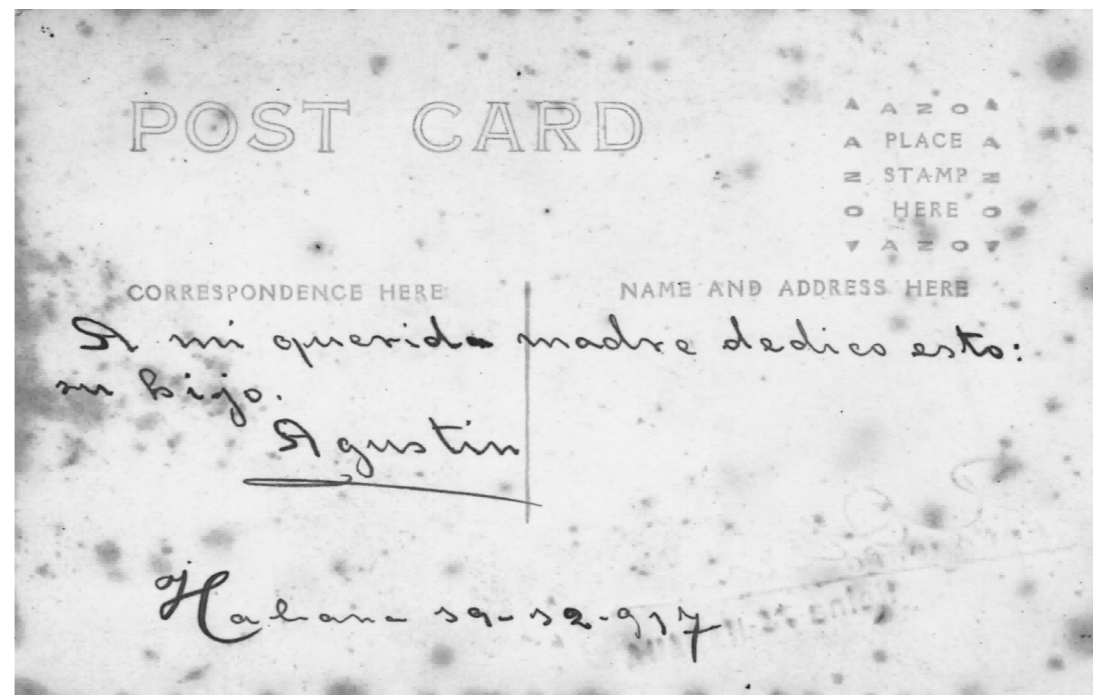 POST CARD
AZO
PLACE
STAMP
HERE
AZO
CORRESPONDENCE HERE
NAME AND ADDRESS HERE
A mi querida madre dedico esto:
su hijo.
Agustin
Habana 19-12-917